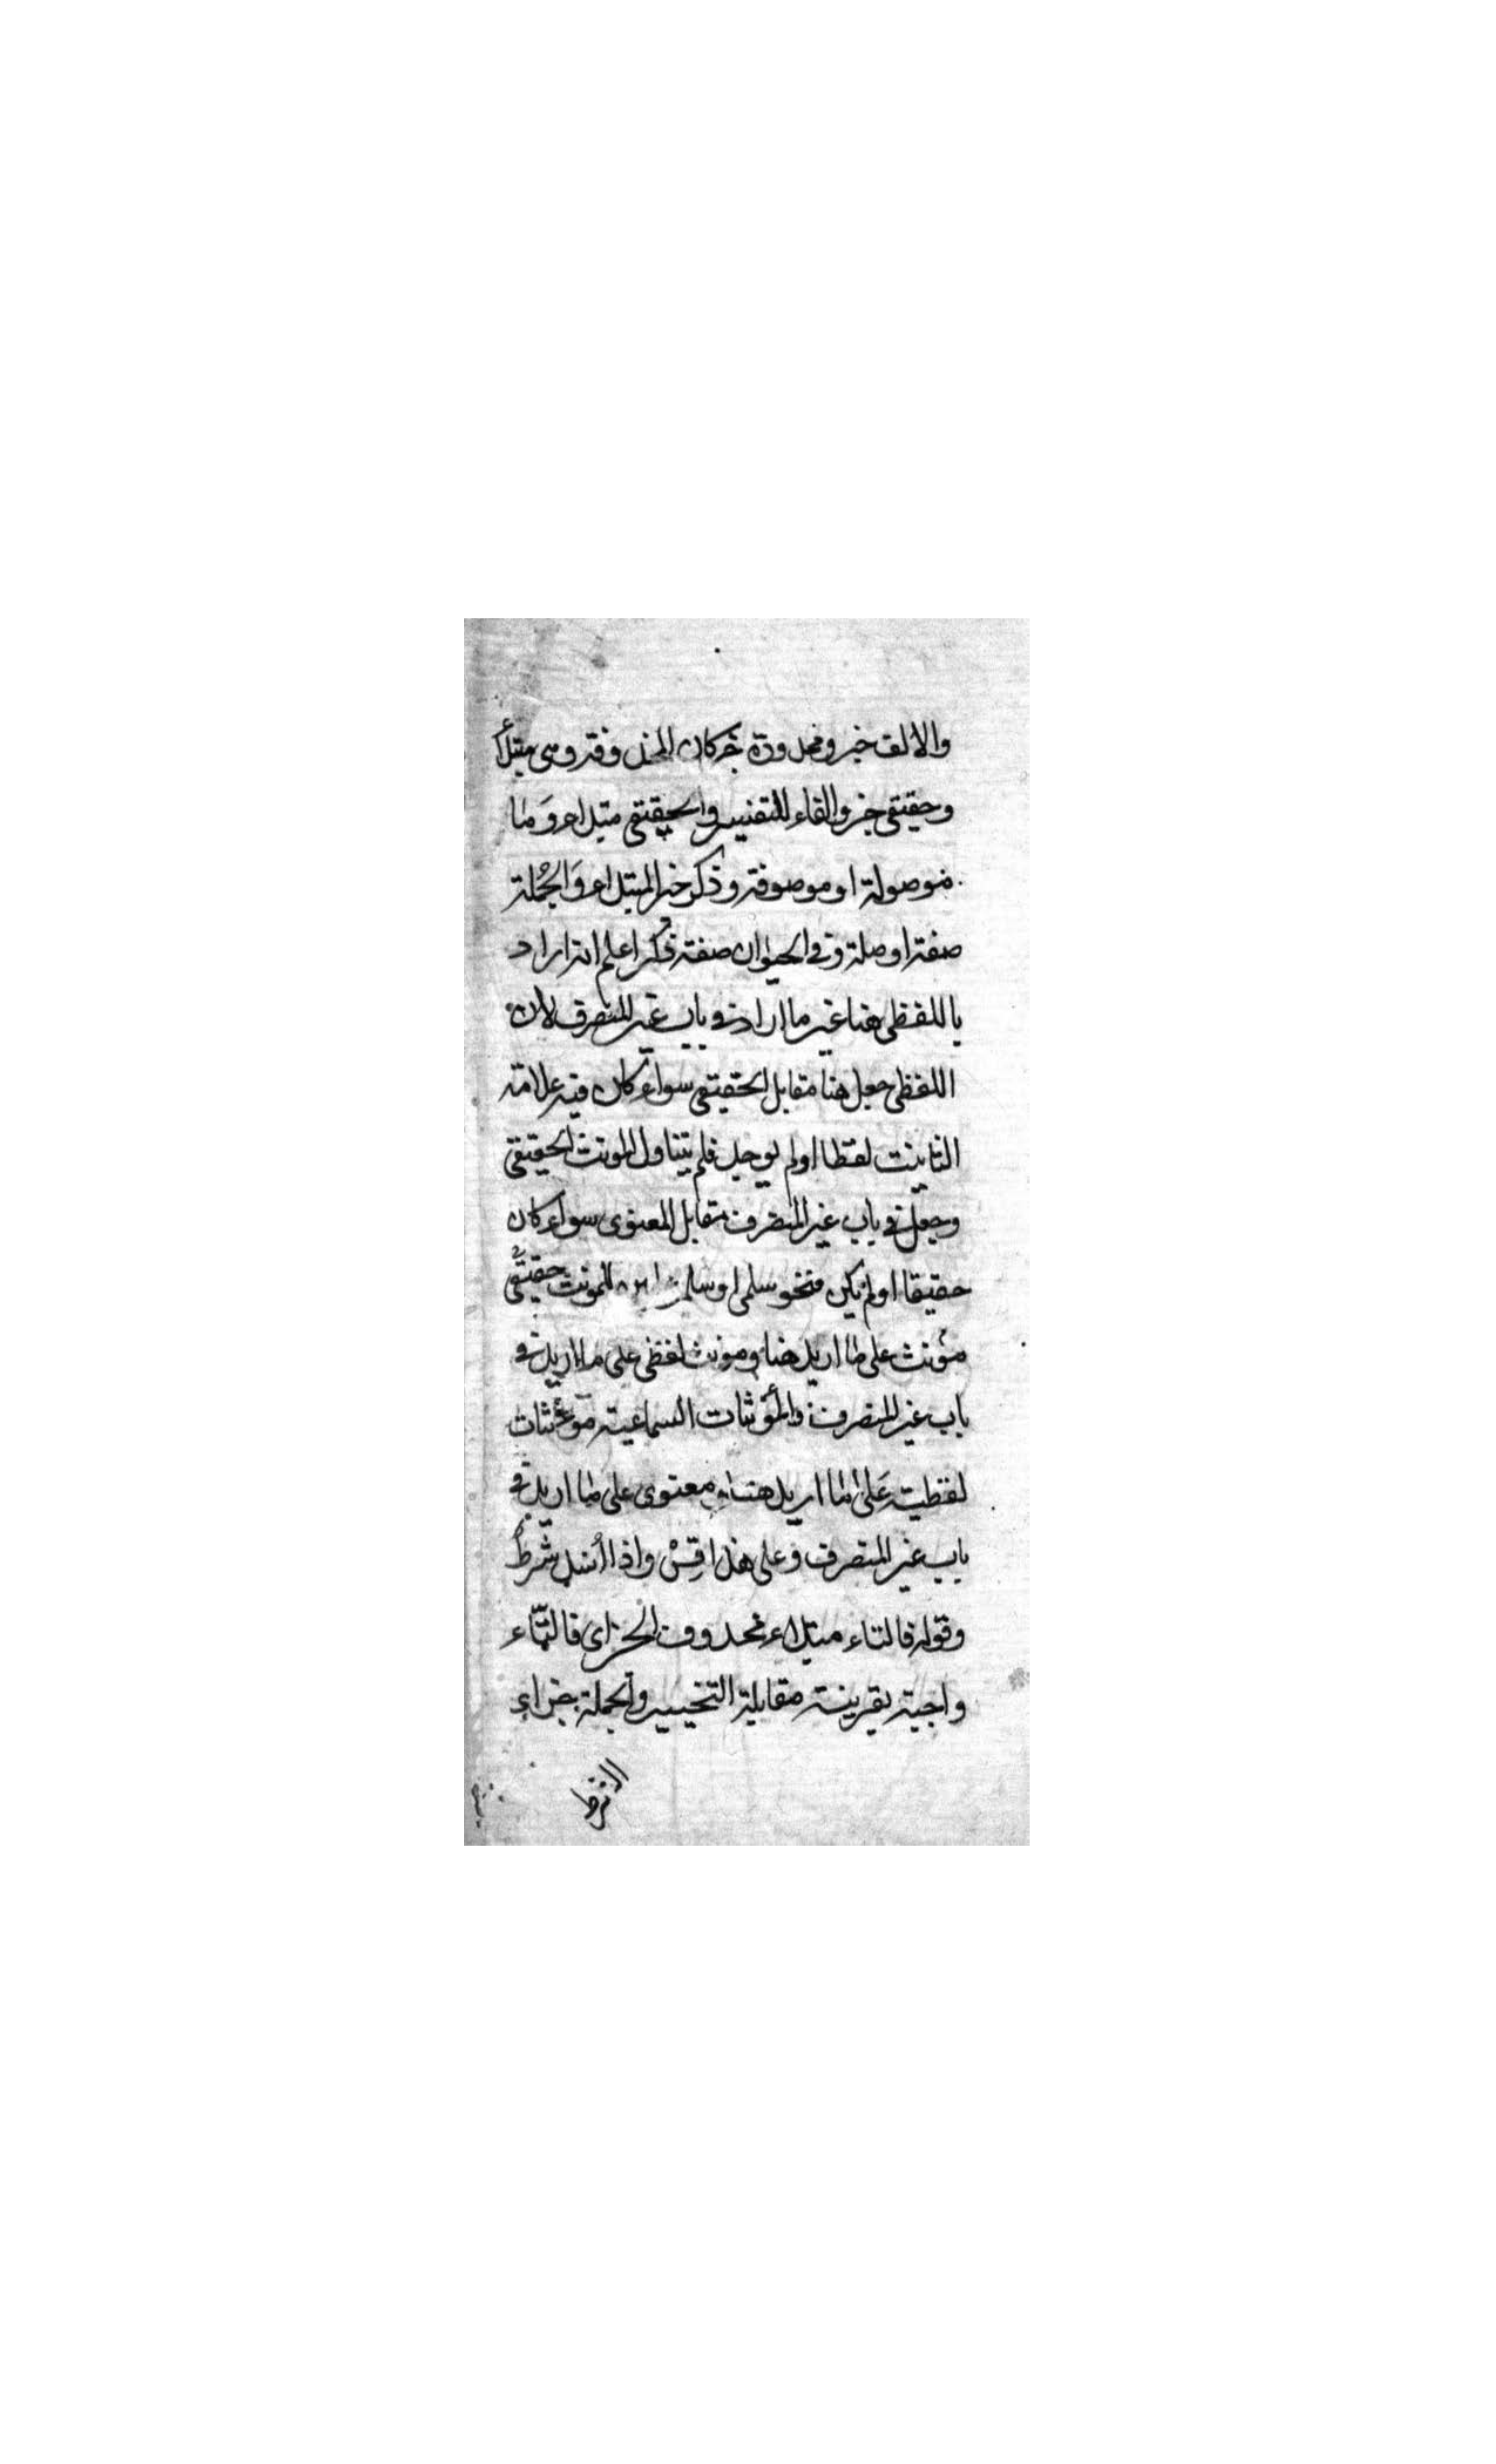 والالف خبر ومحدودة خبر كان المحذوفة وهى مبتدأ
وحقيقى خبر والفاء للتفسير والحقيقى مبتداء وَما
موصولة او موصوفة وذكر خبر المبتداء وَالجُملة
صفة او صلة وفى الحيوان صفة ذكر اعلم انه اراد
باللفظى هنا غير ما اراد فى باب غير المنصرف لان
اللفظى جعل هنا مقابل الحقيقى سواء كان فيه علامة
التانيث لفظا اولم يوجد فلم يتناول المونث الحقيقى
وجعل فى باب غير المنصرف مقابل المعنوى سواء كان
حقيقا اولم يكن فنحو سلمى او سلمة المونث حقيقى
مؤنث على ما اريد هنا ومونث لفظى على ما اريد فى
باب غير المنصرف والمؤنثات السماعية مؤنثات
لفظية عَلى ما اريد هنا معنوى على ما اريد فى
باب غير المنصرف وعلى هذا قِسْ واذا اُسند شرط
وقوله فالتاء مبتداء محذوف الخبر اى فالتّاء
واجبة بقرينة مقابلة التخيير والجملة جزاء
الشرط